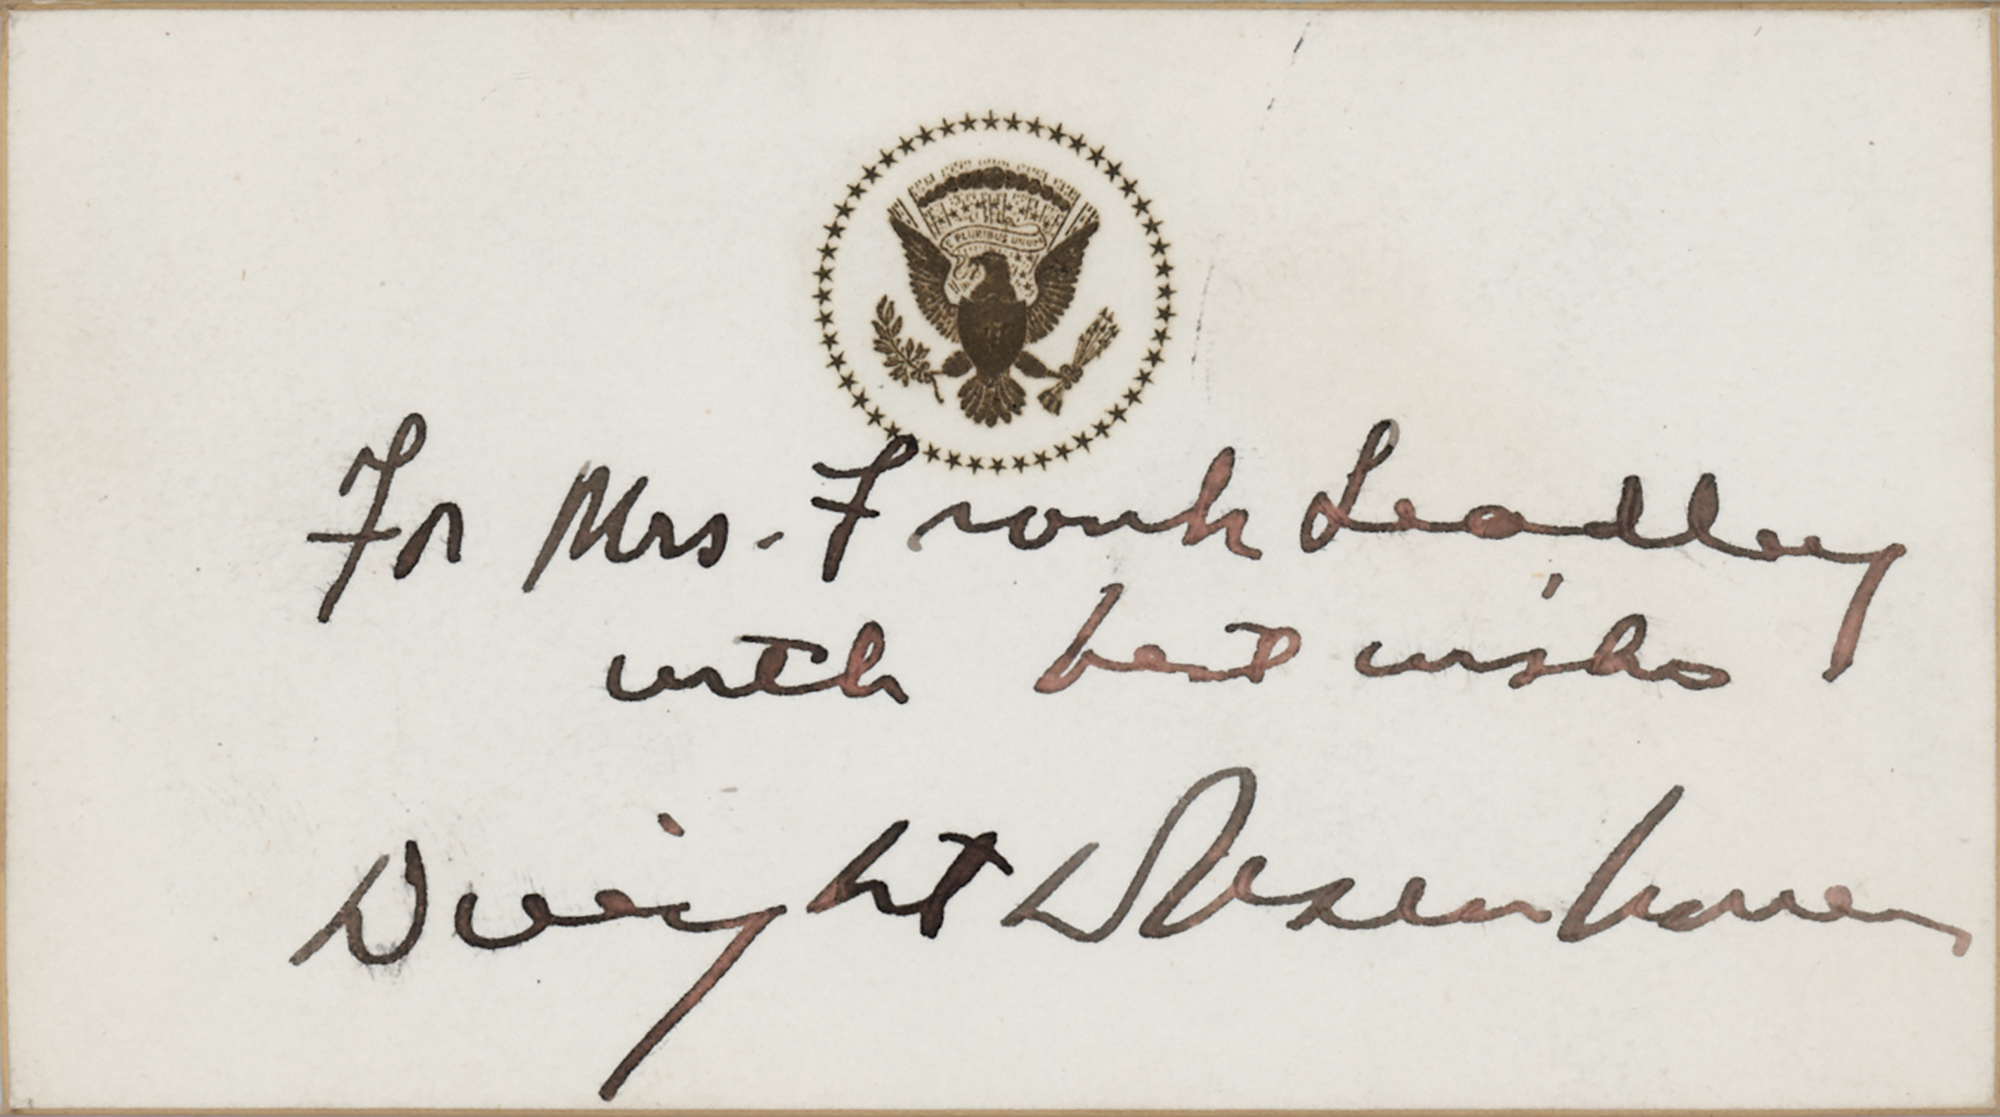 E PLURIBUS UNUM
For Mrs. Frank Leadley
with best wishes
Dwight D Eisenhower